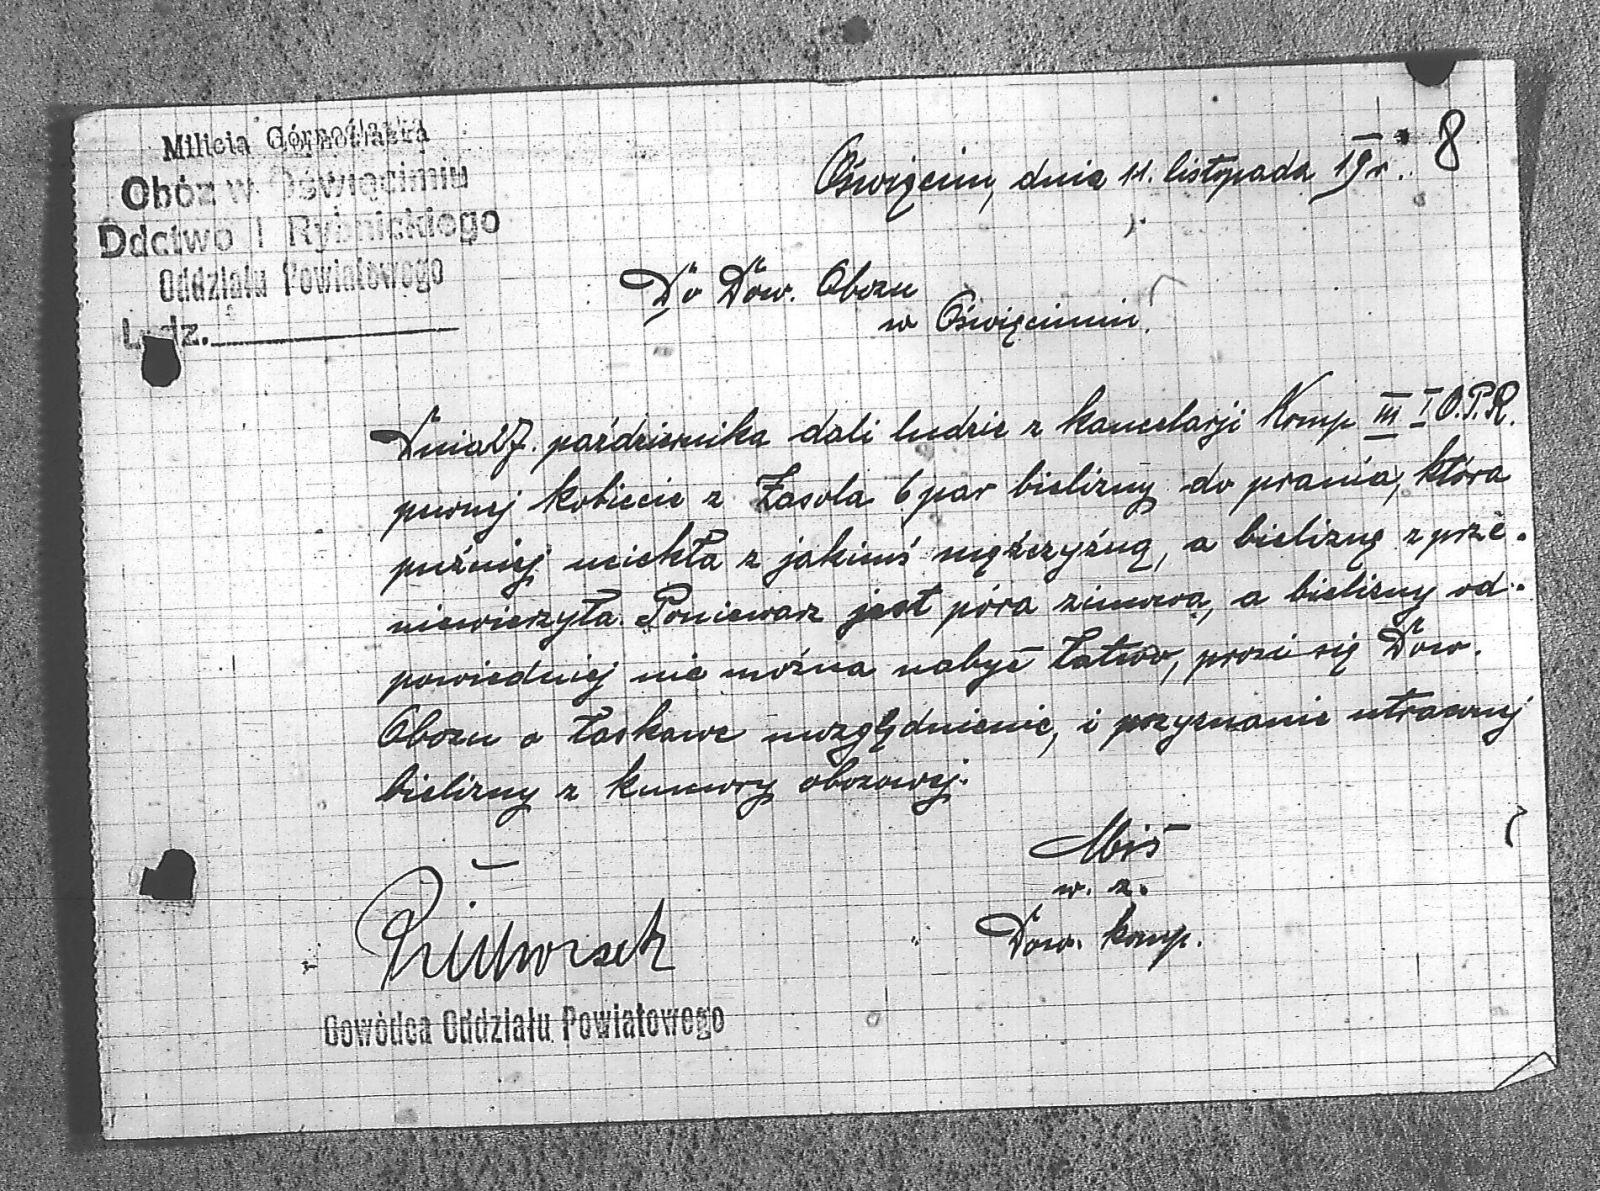 Milicja Górnośląska
Obóz w Oświęcimiu
Ddctwo I Rybnickiego
Oddziału Powiatowego
L. dz.
8
Oświęcim, dnia 11. listopada 19 r.
Do Dow. Obozu
w Oświęcimiu.
Dnia 27. października dali ludzie z kancelarji Komp III I O.P.R.
pewnej kobiecie z Zasola 6 par bielizny do prania, która
puźniej uciekła z jakimś mężczyźną, a bieliznę zprze-
niewierzyła. Poniewarz jest póra zimowa, a bielizny od-
powiedniej nie można nabyć łatwo, prosi się Dow.
Obozu o łaskawe uwzględnienie, i przyznanie utraconej
bielizny z kumory obozowej.
Miś
w. z.
Dow. komp.
Dowódca Oddziału Powiatowego